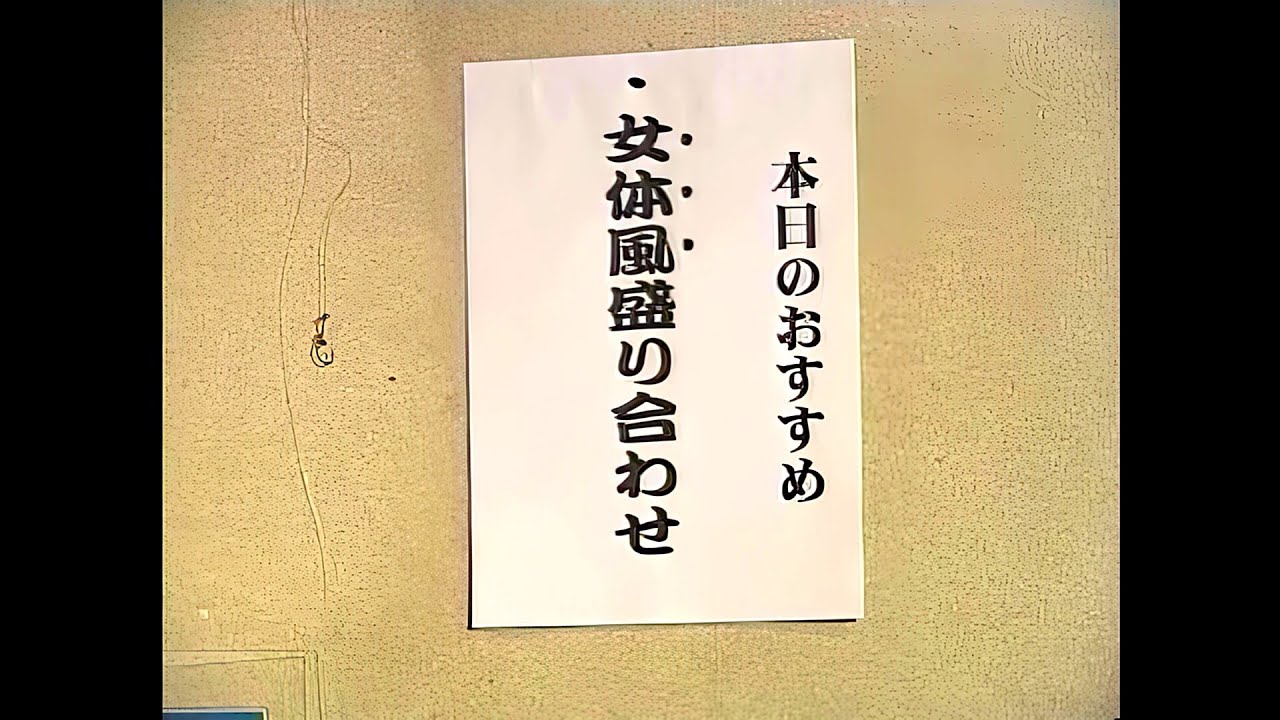 本日のおすすめ
・女体風盛り合わせ